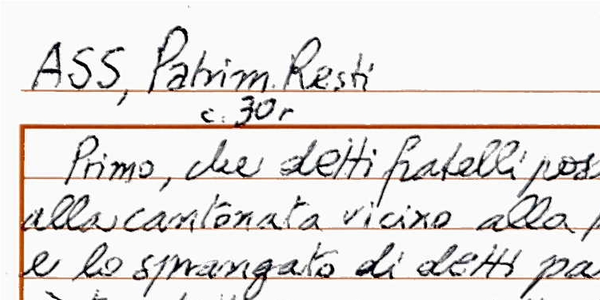 ASS, Patrim. Resti
c. 30r
Primo, che detti fratelli poss
alla cantonata vicino alla p
e lo sprangato di detti pa